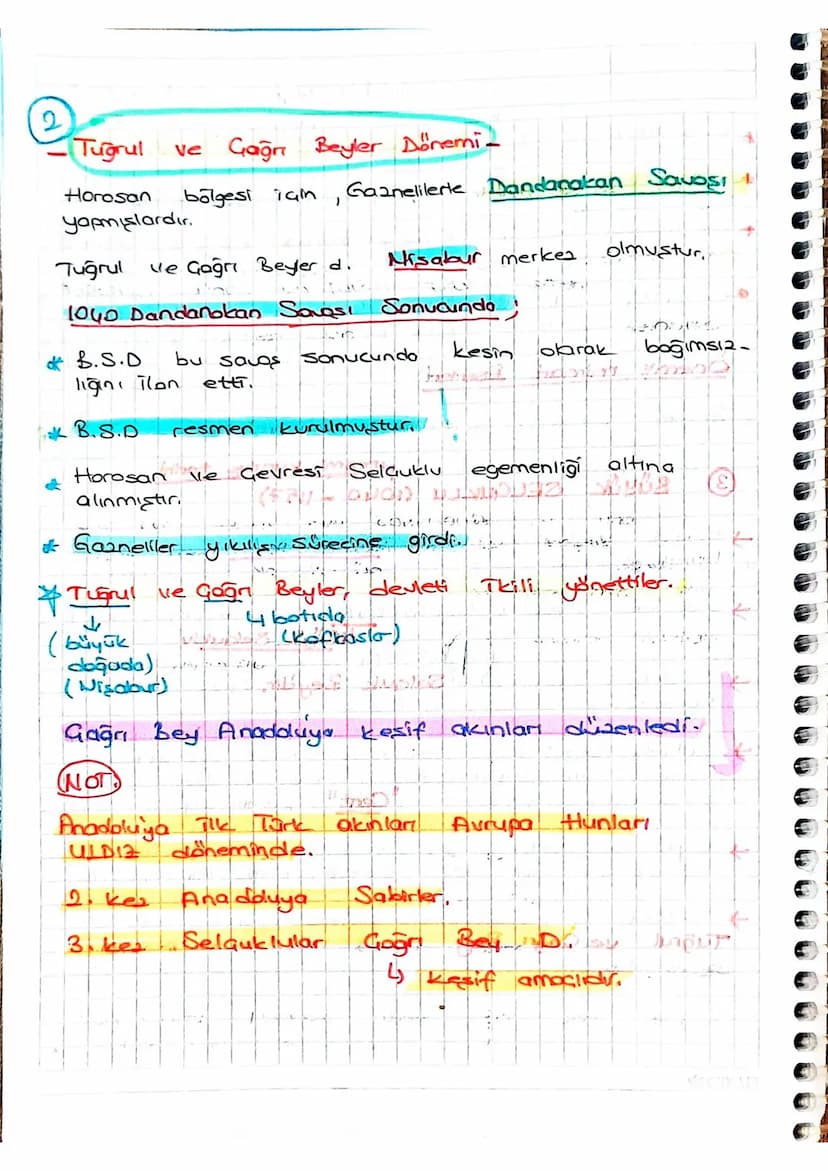 2
- Tuğrul ve Çağrı Beyler Dönemi -
Horosan bölgesi için, Gaznelilerle Dandanakan Savaşı
yapmışlardır.
Tuğrul ve Çağrı Beyler d. Nişabur merkez olmuştur.
1040 Dandanakan Savaşı Sonucunda;
* B.S.D bu savaş sonucunda kesin olarak bağımsız-
lığını ilan etti.
* B.S.D resmen kurulmuştur.
* Horosan ve Çevresi Selçuklu egemenliği altına
alınmıştır.
* Gazneliler yıkılış sürecine girdi.
* Tuğrul ve Çağrı Beyler, devleti İkili yönettiler.
↓ ↳ batıda
(büyük (Kafkaslar)
doğuda)
(Nişabur)
Çağrı Bey Anadolu'ya keşif akınları düzenledi.
NOT.
Anadolu'ya ilk Türk akınları Avrupa Hunları
ULDIZ döneminde.
2. kez Anadoluya Sabirler.
3. kez Selçuklular Çağrı Bey D.
↳ keşif amaçlıdır.